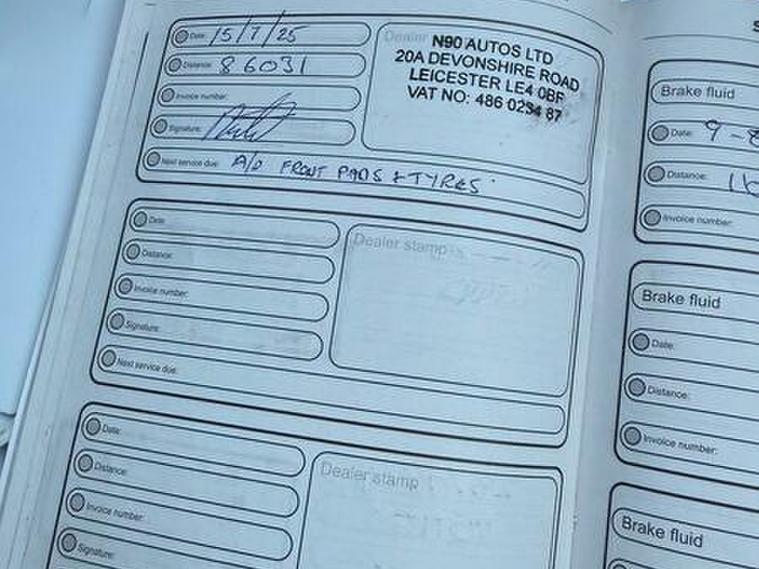 Date: 15/7/25
Distance: 86031
Invoice number:
Signature:
Next service due: A/D FRONT PADS & TYRES
Dealer
N90 AUTOS LTD
20A DEVONSHIRE ROAD
LEICESTER LE4 0BF
VAT NO: 486 0234 87
Date:
Distance:
Invoice number:
Signature:
Next service due:
Dealer stamp
Date:
Distance:
Invoice number:
Signature:
Dealer stamp
Brake fluid
Date: 9-
Distance:
Invoice number:
Brake fluid
Date:
Distance:
Invoice number:
Brake fluid